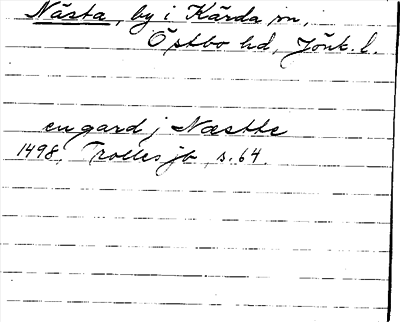 Nästa, by i Kärda sn,
Östbo hd, Jönk. l.
en gard j Næstte
1498. Trolles jb s. 64.